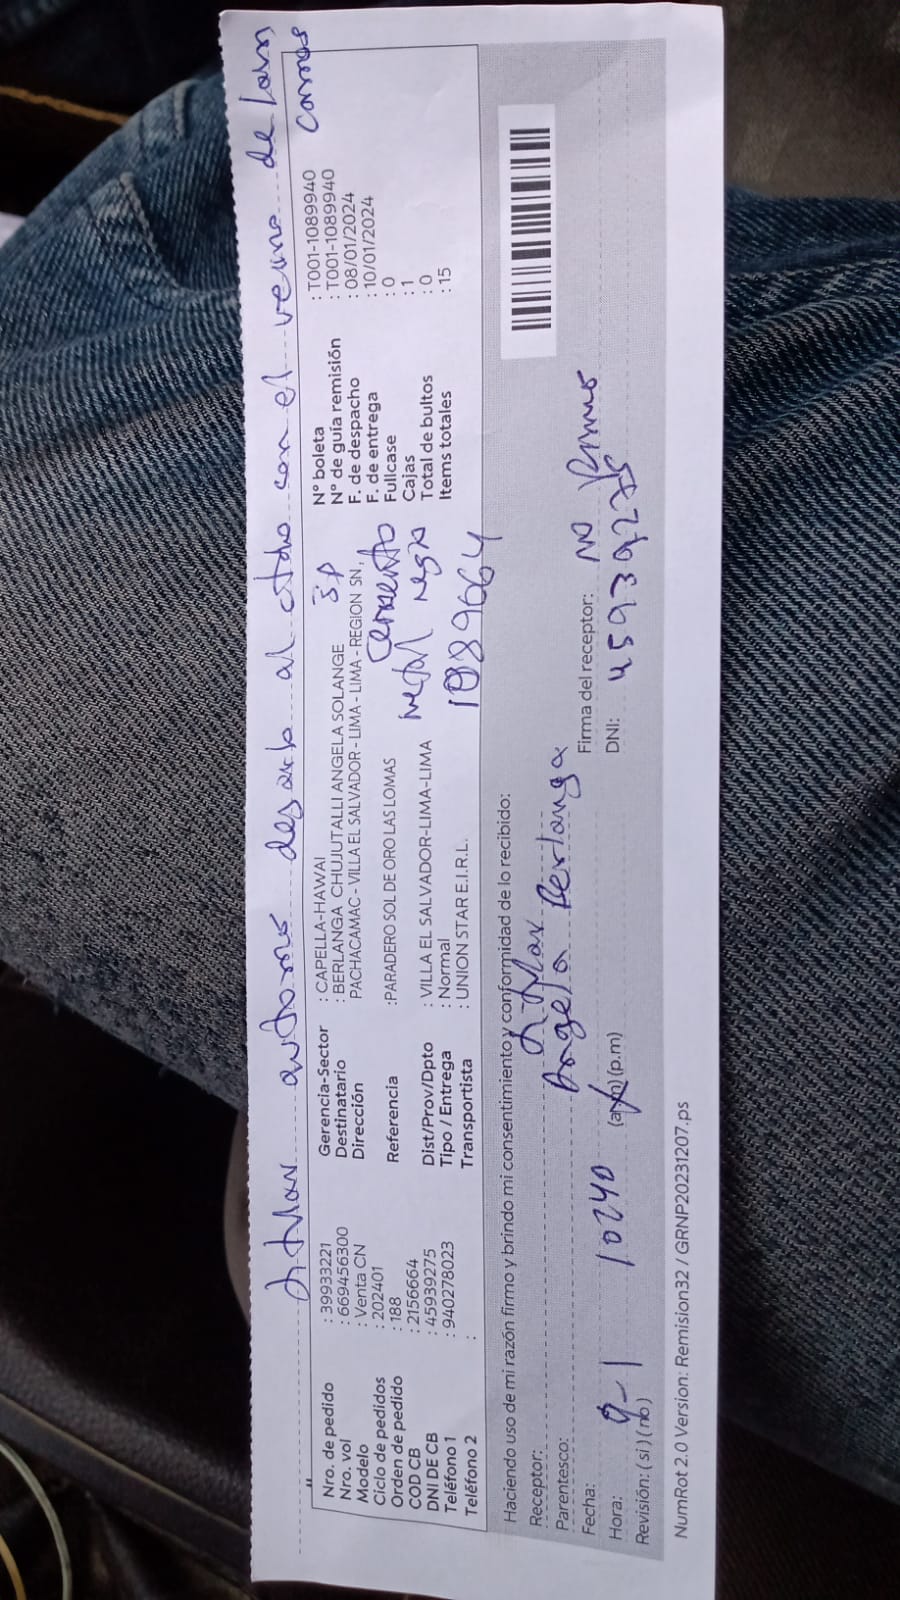 titular autorizo dejarlo al costado con el vecino de Lava
carros
Gerencia-Sector : CAPELLA-HAWAI
Destinatario : BERLANGA CHUJUTALLI ANGELA SOLANGE
Dirección PACHACAMAC - VILLA EL SALVADOR - LIMA - LIMA - REGION SN,
Referencia :PARADERO SOL DE ORO LAS LOMAS
Dist/Prov/Dpto : VILLA EL SALVADOR-LIMA-LIMA
Tipo / Entrega : Normal
Transportista : UNION STAR E.I.R.L.
3P
Cemento
metal negro
1889664
Nro. de pedido : 39933221
Nro. vol : 669456300
Modelo : Venta CN
Ciclo de pedidos : 202401
Orden de pedido : 188
COD CB : 2156664
DNI DE CB : 45939275
Teléfono 1 : 940278023
Teléfono 2 :
N° boleta : T001-1089940
N° de guía remisión : T001-1089940
F. de despacho : 08/01/2024
F. de entrega : 10/01/2024
Fullcase : 0
Cajas : 1
Total de bultos : 0
Items totales : 15
Haciendo uso de mi razón firmo y brindo mi consentimiento y conformidad de lo recibido:
Receptor: titular
Parentesco: Angela Berlanga
Fecha: 9-1
Hora: 10:40 (a.m)(p.m)
Revisión: (si) (no)
Firma del receptor: no firmo
DNI: 45939275
NumRot 2.0 Version: Remision32 / GRNP20231207.ps